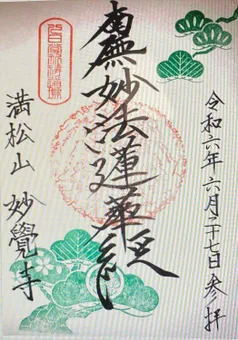 令和六年六月二十七日参拝
南無妙法蓮華経
満松山 妙覺寺